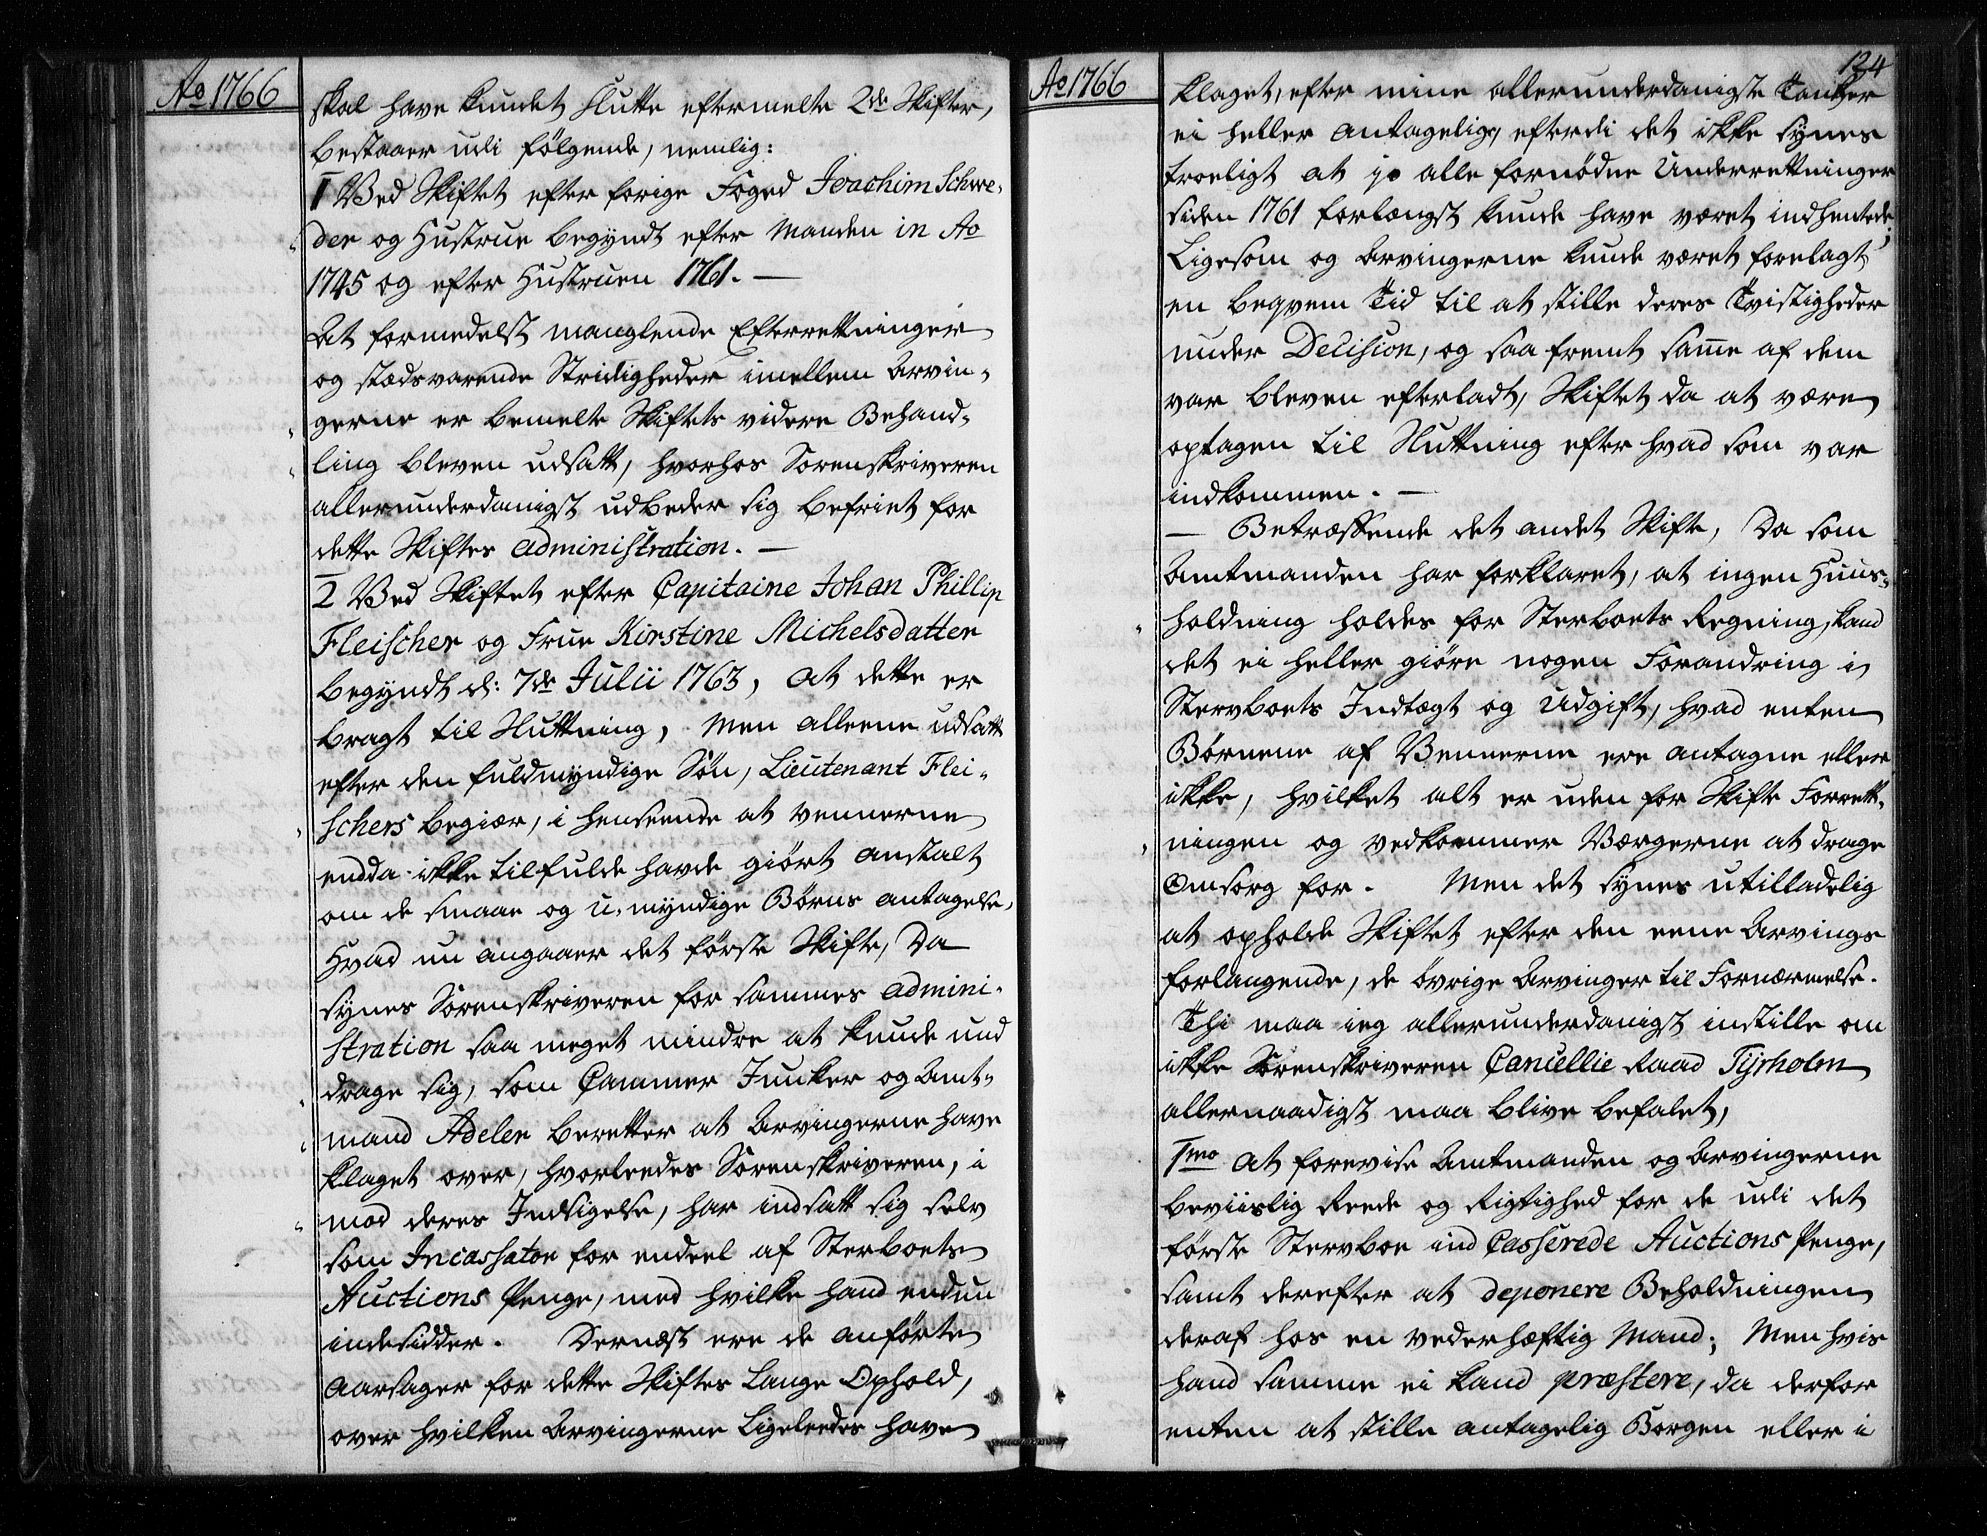 Ao 1766
skal have kundet slutte eftermelte 2de Skifter,
bestaaer udi følgende, nemlig:
1 Ved Skiftet efter forige Foged Joachim Schwe-
der og Hustrue begyndt efter Manden in Ao
1745 og efter Hustruen 1761. —
At formedelst manglende Efterretninger
og stædsvarende Stridigheder imellem Arvin-
gerne er bemelte Skiftets videre Behand-
ling bleven udsatt, hvorhos Sorenskriveren
allerunderdanigst udbeder sig befriet for
dette Skiftes Administration. —
2 Ved Skiftet efter Capitaine Johan Phillip
Fleischer og Frue Kirstine Michelsdatter
begyndt d: 7de Julii 1763, at dette er
bragt til Slutning, Men alleene udsatt
efter den fuldmyndige Søn, Lieutenant Flei-
schers begiær, i henseende at Vennerne
endda ikke tilfulde havde giørt anstalt
om de smaae og u-myndige Børns antagelse,
Hvad nu angaaer det første Skifte, Da
synes Sorenskriveren for sammes admini-
stration saa meget mindre at kunde und
drage sig, som Cammer Junker og Amt-
mand Adeler beretter at Arvingerne have
klaget over, hvorleedes Sorenskriveren, i
mod deres Indsigelse, har indsatt sig selv
som Incassator for endeel af Sterboets
Auctions Penge, med hvilke hand endnu
indesidder. Dernæst ere de anførte
Aarsager for dette Skiftes Lange Ophold,
over hvilken Arvingerne Ligeleedes have
Ao 1766
134
klaget, efter mine allerunderdanigste Tanker
ei heller antagelig, efterdi det ikke synes
troeligt at jo alle fornødne Underretninger
siden 1761 forlængst kunde have været indhentede;
Ligesom og Arvingerne kunde været forelagt
en beqvem Tid til at stille deres Tvistigheder
under Decision, og saa fremt samme af dem
var bleven efterladt, Skiftet da at være
optagen til Slutning efter hvad som var
indkommen. —
— Betræffende det andet Skifte, Da som
Amtmanden har forklaret, at ingen Huus-
holdning holdes for Sterboets Regning, kand
det ei heller giøre nogen Forandring i
Stervboets Indtægt og Udgift, hvad enten
Børnene af Vennerne ere antagne eller
ikke, hvilket alt er uden for Skifte Forrett-
ningen og vedkommer Værgerne at drage
Omsorg for. Men det synes utilladelig
at opholde Skiftet efter den eene Arvings
forlangende, de øvrige Arvinger til Fornærmelse.
Thi maa ieg allerunderdanigst instille om
ikke Sorenskriveren Cancellie Raad Tyrholm
allernaadigst maa blive befalet,
1mo At forevise Amtmanden og Arvingerne
beviislig Reede og Rigtighed for de udi det
første Stervboe ind Casserede Auctions Penge,
samt derefter at deponere Beholdningen
deraf hos en vederhæftig Mand; Men hvis
hand samme ei kand præstere, da derfor
enten at stille antagelig Borgen eller i